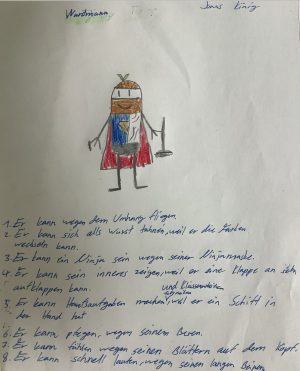 Wurstmann
Jonas König
1. Er kann wegen dem Umhang fliegen.
2. Er kann sich als Wurst tahnen, weil er die Farben
wechseln kann.
3. Er kann ein Ninja sein wegen seiner Ninjamaske.
4. Er kann sein inneres zeigen, weil er eine Klappe an sich
aufklappen kann.
und Klassenarbeiten
5. Er kann Hausaufgaben machen, weil er ein Schift in
der Hand hat
6. Er kann wegen seinem
7. Er kann fühlen wegen seinen Blättern auf dem Kopf.
8. Er kann schnell laufen, wegen seinen langen Beinen